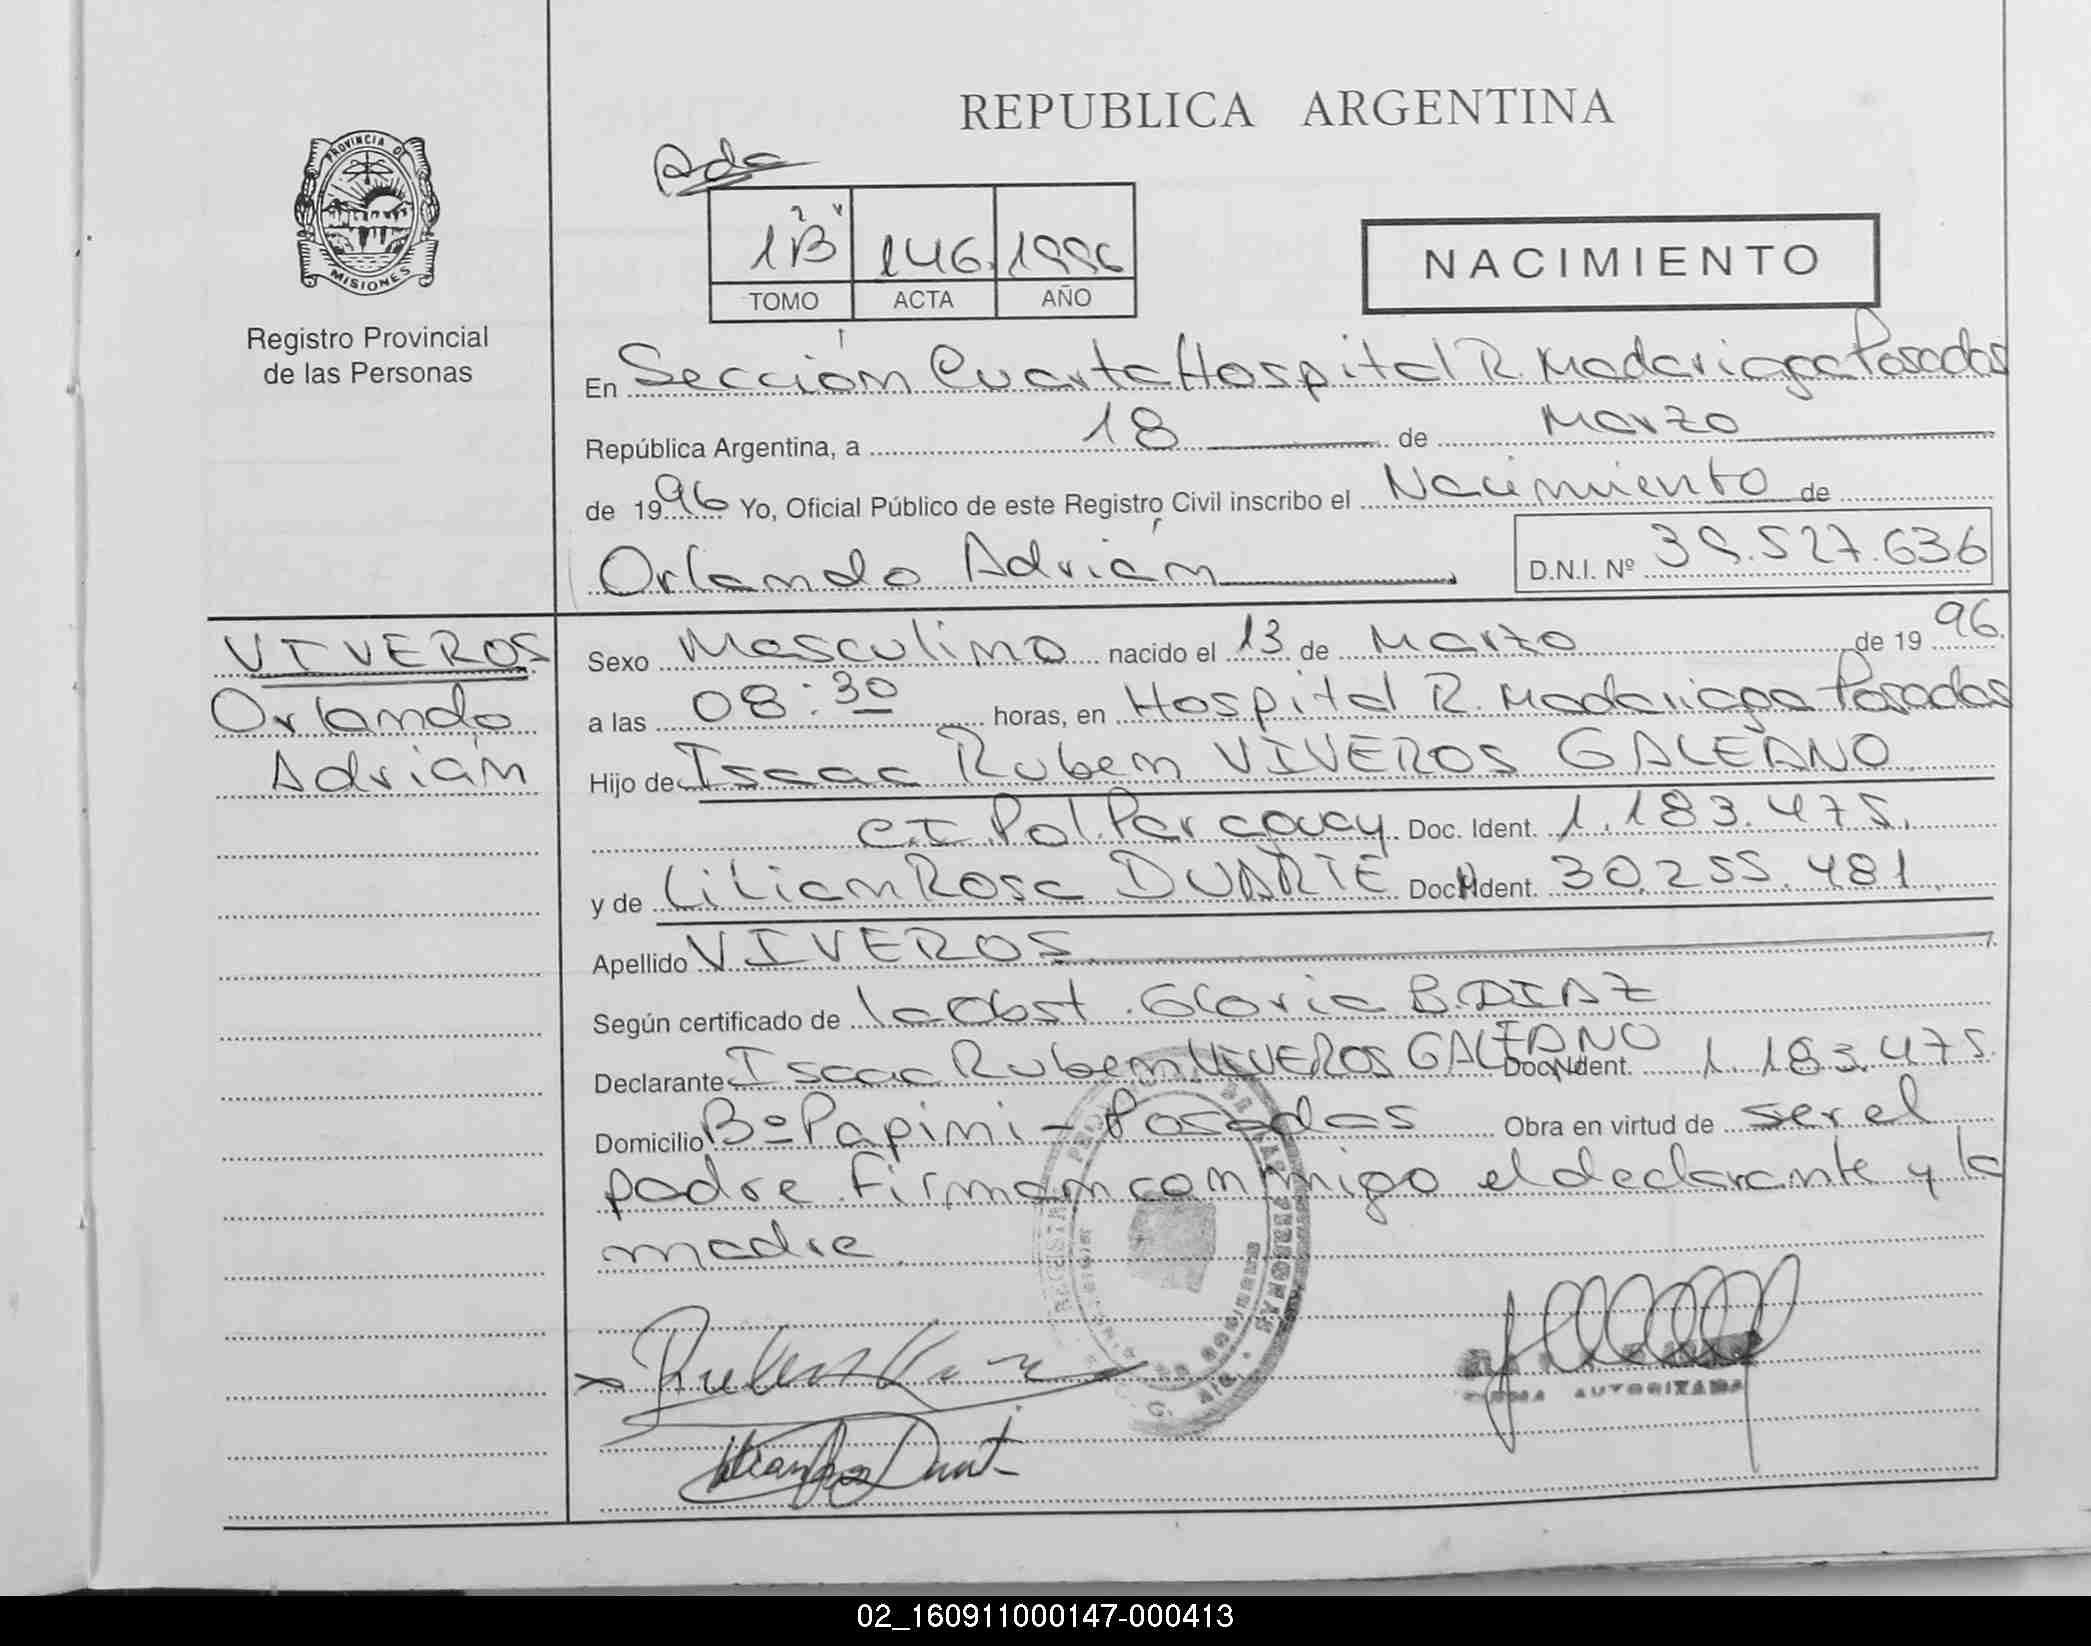 REPUBLICA ARGENTINA
PROVINCIA DE
MISIONES
Registro Provincial
de las Personas
1B 146 1996
TOMO ACTA AÑO
NACIMIENTO
En Sección Cuarta Hospital R. Madariaga Posadas
República Argentina, a 18 de Marzo
de 1996 Yo, Oficial Público de este Registro Civil inscribo el Nacimiento de
Orlando Adrián D.N.I. Nº 39.527.636
VIVEROS
Orlando
Adrián
Sexo Masculino nacido el 13 de Marzo de 1996.
a las 08:30 horas, en Hospital R. Madariaga Posadas
Hijo de Isaac Ruben VIVEROS GALEANO
C.I. Pol. Paraguay Doc. Ident. 1.183.475.
y de Lilian Rosa DUARTE Doc. Ident. 30.255.481.
Apellido VIVEROS
Según certificado de la Obst. Gloria B. DIAZ
Declarante Isaac Ruben VIVEROS GALEANO Doc. Ident. 1.183.475.
Domicilio Bº Papini - Posadas Obra en virtud de ser el
padre. Firman conmigo el declarante y la
madre.
FIRMA AUTORIZADA
02_160911000147-000413